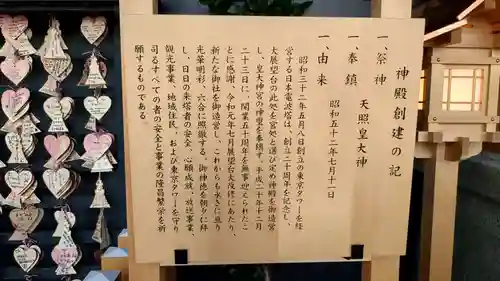 神殿創建の記
一、祭神　天照皇大神
一、奉鎮　昭和五十二年七月十一日
一、由来
昭和三十二年五月八日創立の東京タワーを経
営する日本電波塔は、創立二十周年を記念し、
大展望台の此処を選び定め神殿を御造営
し、皇大神宮の神霊を奉鎮す。平成二十年十二月
二十三日に、開業五十周年を無事迎えられたこ
とに感謝、令和元年七月展望台大改修にあたり、
新たな御社を御造営し、これからも永きに亘り
光輝明彩、六合に照徹する、御神徳を朝々に拝
し、日日の来塔者の安全、心願成就、放送事業、
観光事業、地域住民、および東京タワーを守り
司るすべての者の安全と事業の隆昌繁栄を祈
願するものである。